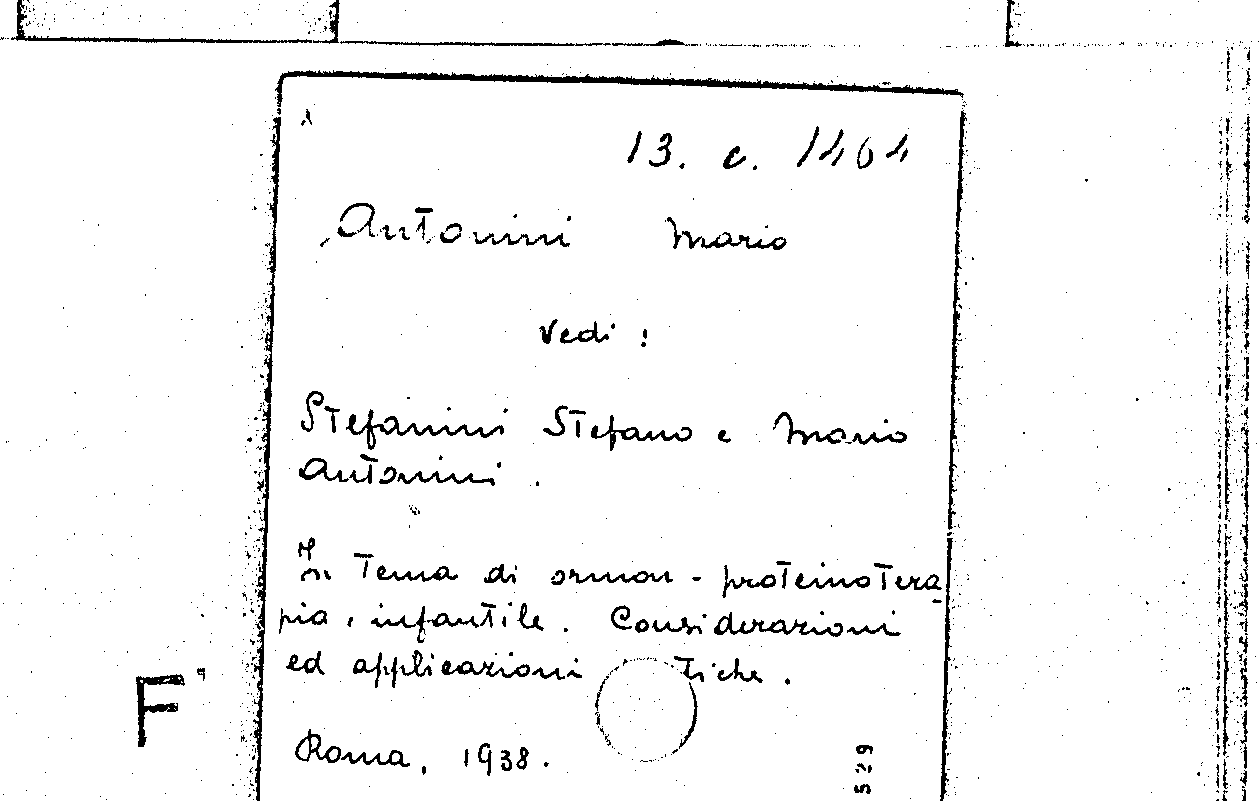 13. c. 1464
Antonini Mario
Vedi:
Stefanini Stefano e Mario
Antonini.
In Tema di ormon-proteinotera
pia infantile. Considerazioni
ed applicazioni
F
Roma, 1938.
529